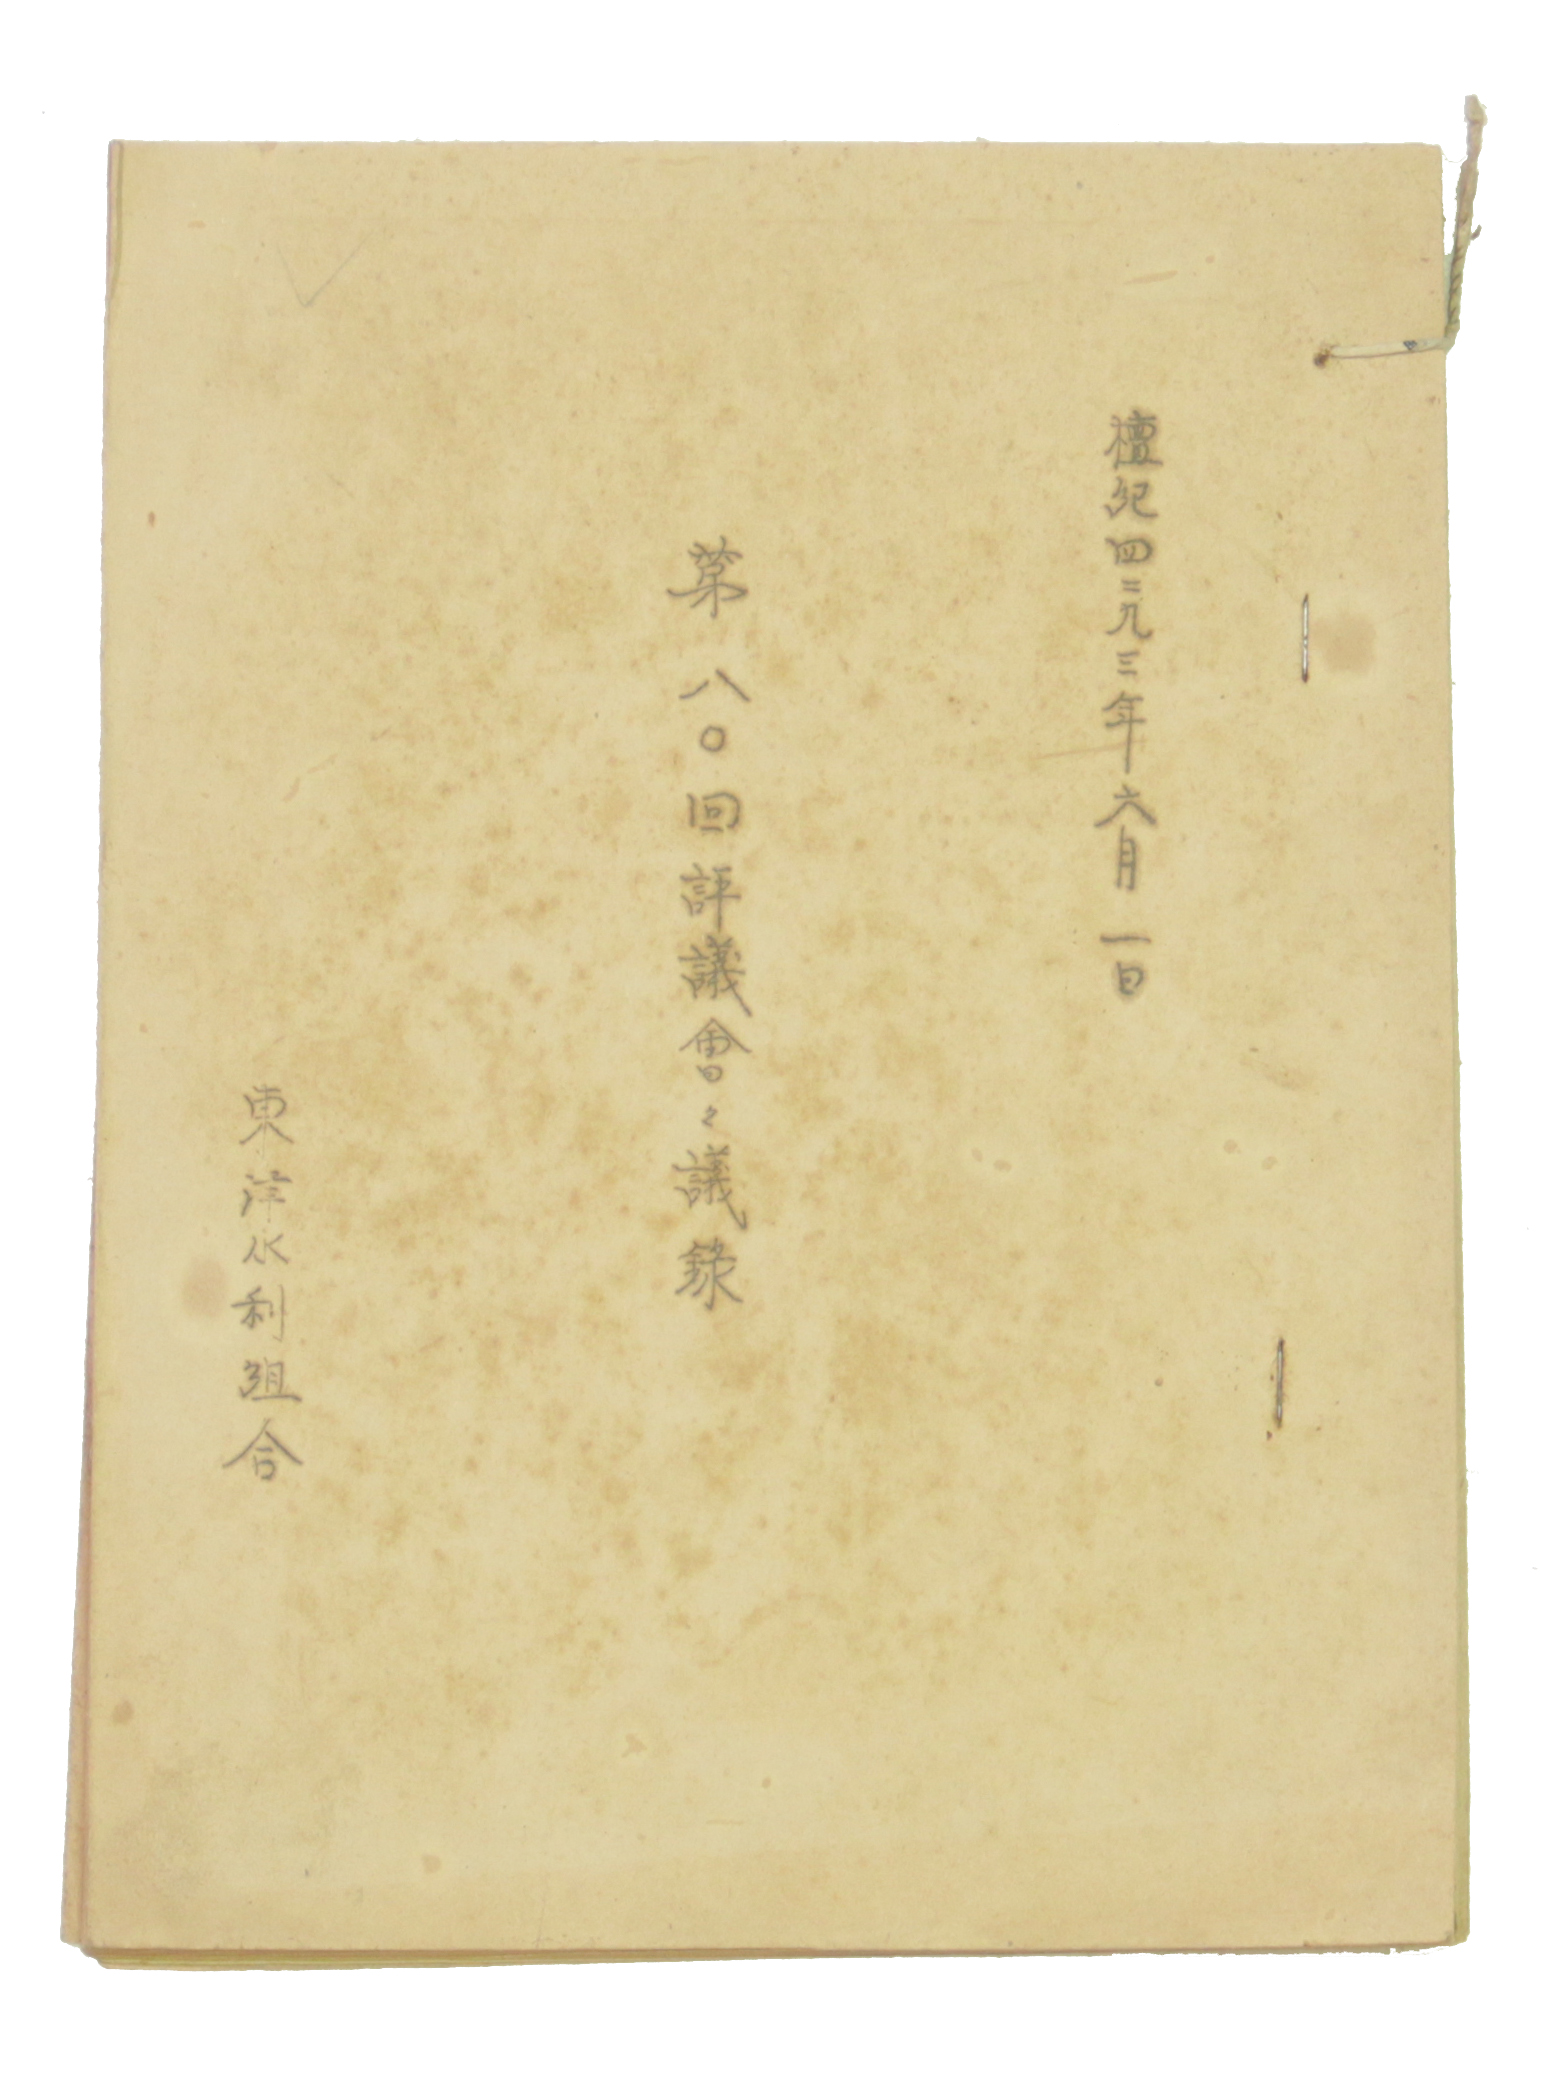 檀紀四二九三年六月一日
第八〇回評議會々議錄
東洋水利組合